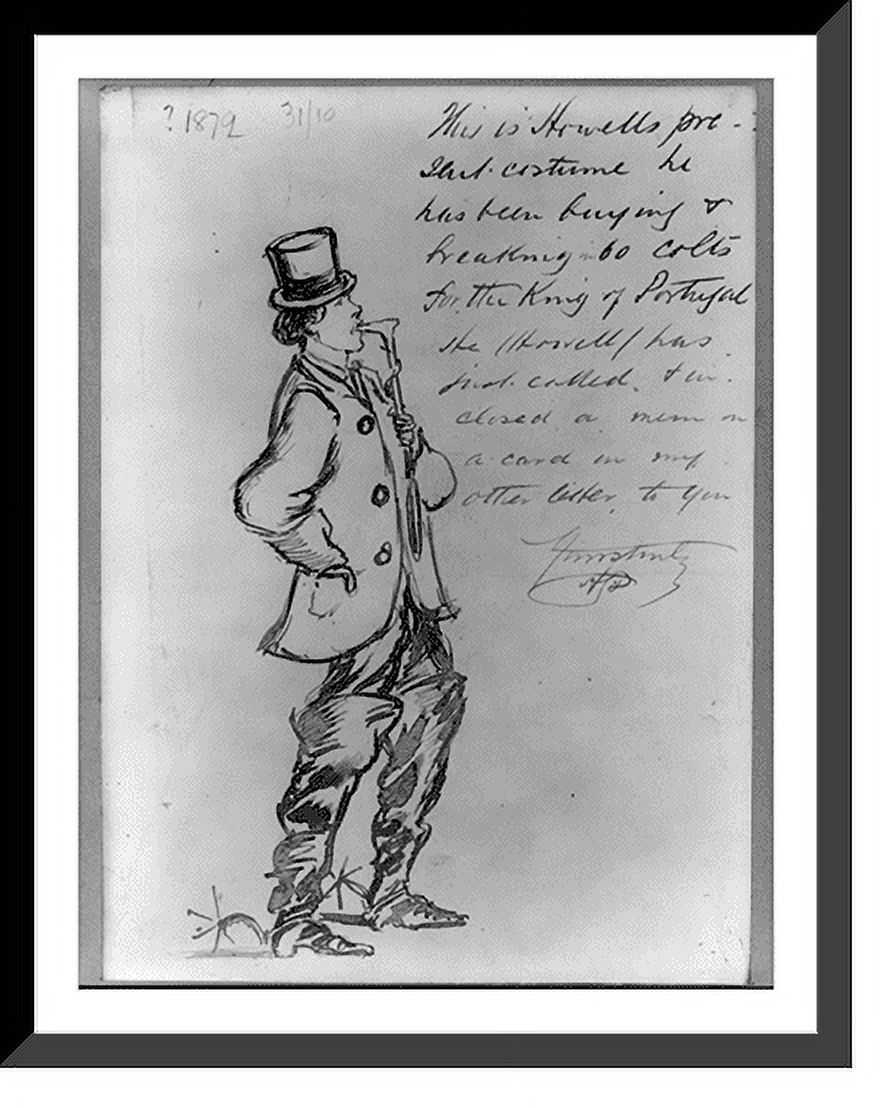 ? 1879 31/10
This is Howells pre-
sent costume he
has been buying &
breaking 60 colts
for the King of Portugal
He (Howell) has
just called. & in-
closed a mem on
a card in my
other letter, to you